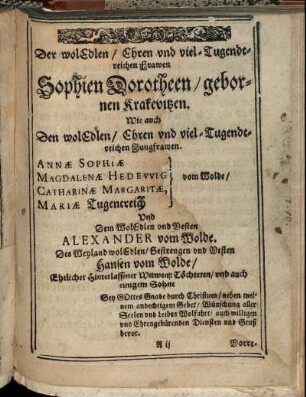 Der wolEdlen / Ehren vnd viel-Tugende-
reichen Frawen
Sophien Dorotheen / gebor-
nen Krakevitzen.
Wie auch
Den wolEdlen / Ehren vnd viel-Tugende-
reichen Jungfrawen.
ANNÆ SOPHIÆ
MAGDALENÆ HEDEVVIG
CATHARINÆ MARGARITÆ,
MARIÆ Tugenreich
vom Wolde /
Vnd
Dem WolEdlen vnd Vesten
ALEXANDER vom Wolde.
Des Weyland wolEdlen / Gestrengen vnd Vesten
Hansen vom Wolde /
Ehelicher Hinterlassener Witwen; Töchteren / vnd auch
einigem Sohne
Sey GOttes Gnade durch Christum / neben mei-
nem andechtigem Gebet / Wünschung aller
Seelen vnd Leibes Wolfahrt / auch willigen
vnd Ehrengebürenden Diensten vnd Gruß
bevor.
A ij
Vorre-